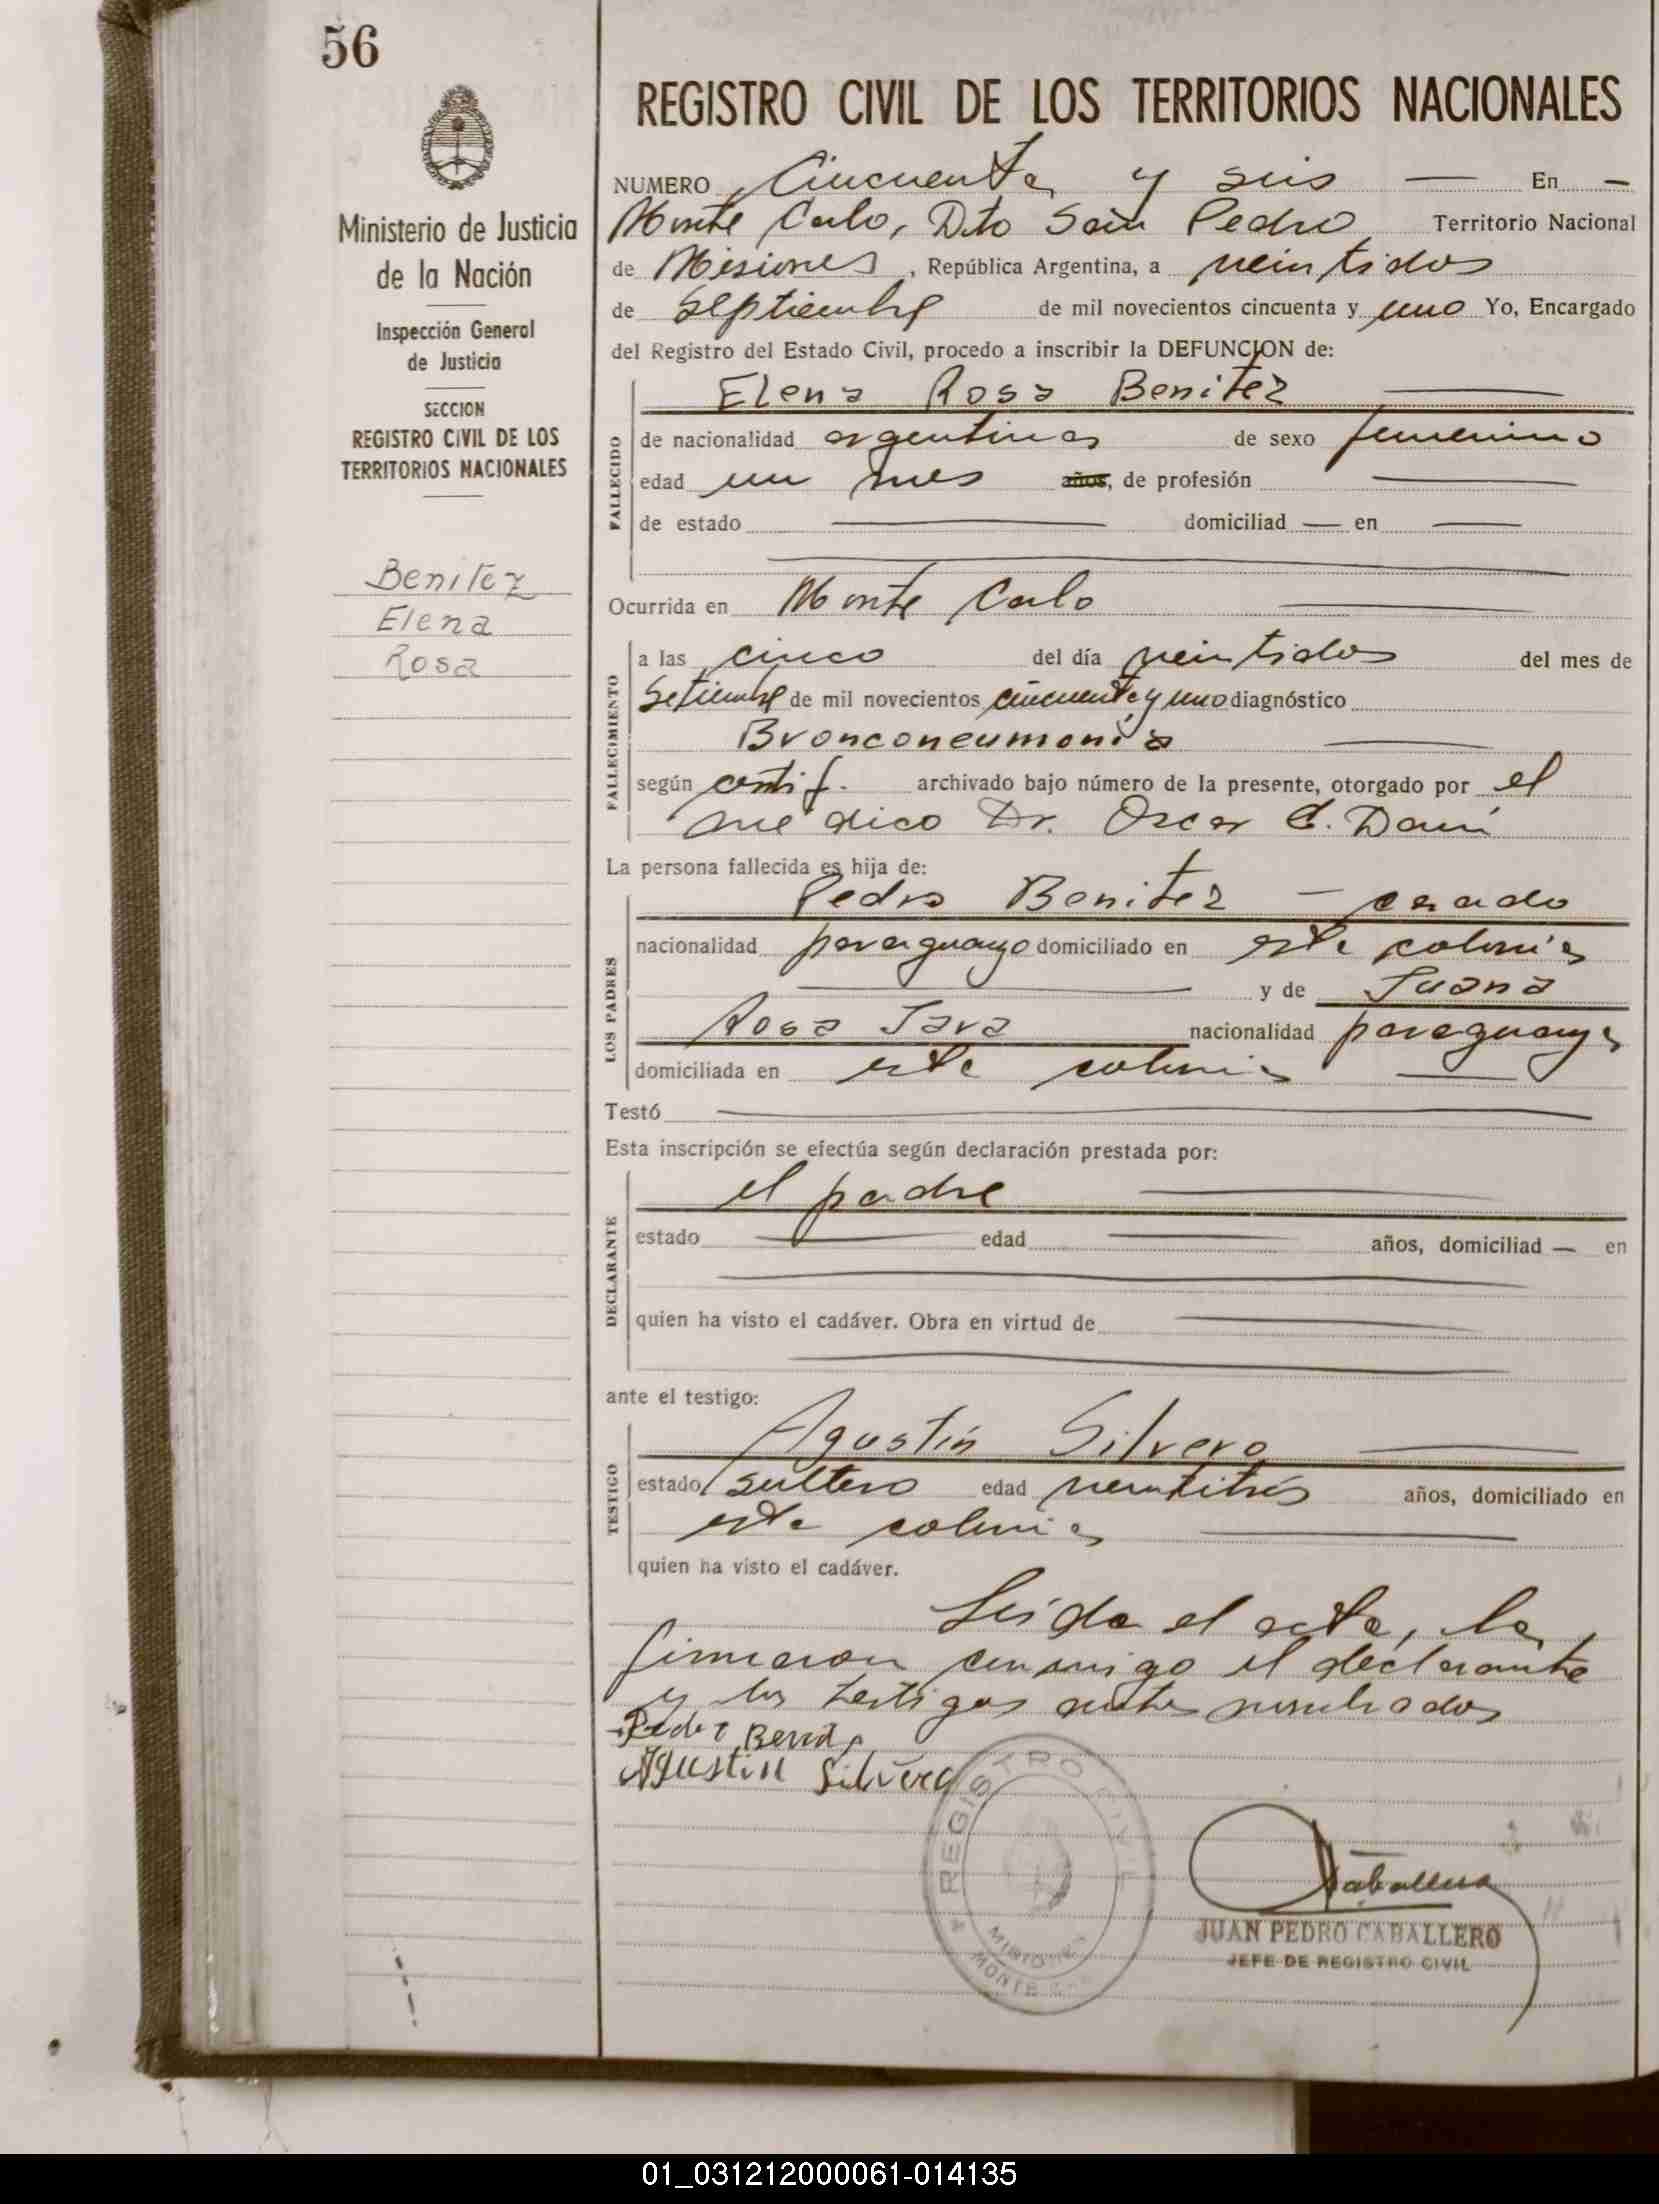 56
Ministerio de Justicia
de la Nación
Inspección General
de Justicia
SECCION
REGISTRO CIVIL DE LOS
TERRITORIOS NACIONALES
Benitez
Elena
Rosa
REGISTRO CIVIL DE LOS TERRITORIOS NACIONALES
NUMERO Cincuenta y seis — En —
Monte Carlo, Dto San Pedro Territorio Nacional
de Misiones, República Argentina, a veintidos
de Septiembre de mil novecientos cincuenta y uno Yo, Encargado
del Registro del Estado Civil, procedo a inscribir la DEFUNCION de:
Elena Rosa Benitez —
FALLECIDO
de nacionalidad argentina de sexo femenino
edad un mes años, de profesión —
de estado — domiciliad — en —
Ocurrida en Monte Carlo —
FALLECIMIENTO
a las cinco del día veintidos del mes de
Setiembre de mil novecientos cincuenta y uno diagnóstico
Bronconeumonia —
según certif. archivado bajo número de la presente, otorgado por el
medico Dr. Oscar C.
La persona fallecida es hija de:
LOS PADRES
Pedro Benitez — casado
nacionalidad paraguayo domiciliado en esta colonia
— y de Juana
Rosa Jara nacionalidad paraguaya
domiciliada en esta colonia —
Testó —
Esta inscripción se efectúa según declaración prestada por:
DECLARANTE
el padre —
estado — edad — años, domiciliad — en
—
quien ha visto el cadáver. Obra en virtud de —
—
ante el testigo:
TESTIGO
Agustín Silvero —
estado soltero edad veintitrés años, domiciliado en
esta colonia —
quien ha visto el cadáver.
Leida el acta, la
firmaron conmigo el declarante
y los testigos antes nombrados
Pedro
Agustin Silvero
REGISTRO CIVIL
MISIONES
MONTE
Caballero
JUAN PEDRO CABALLERO
JEFE DE REGISTRO CIVIL
01_031212000061-014135